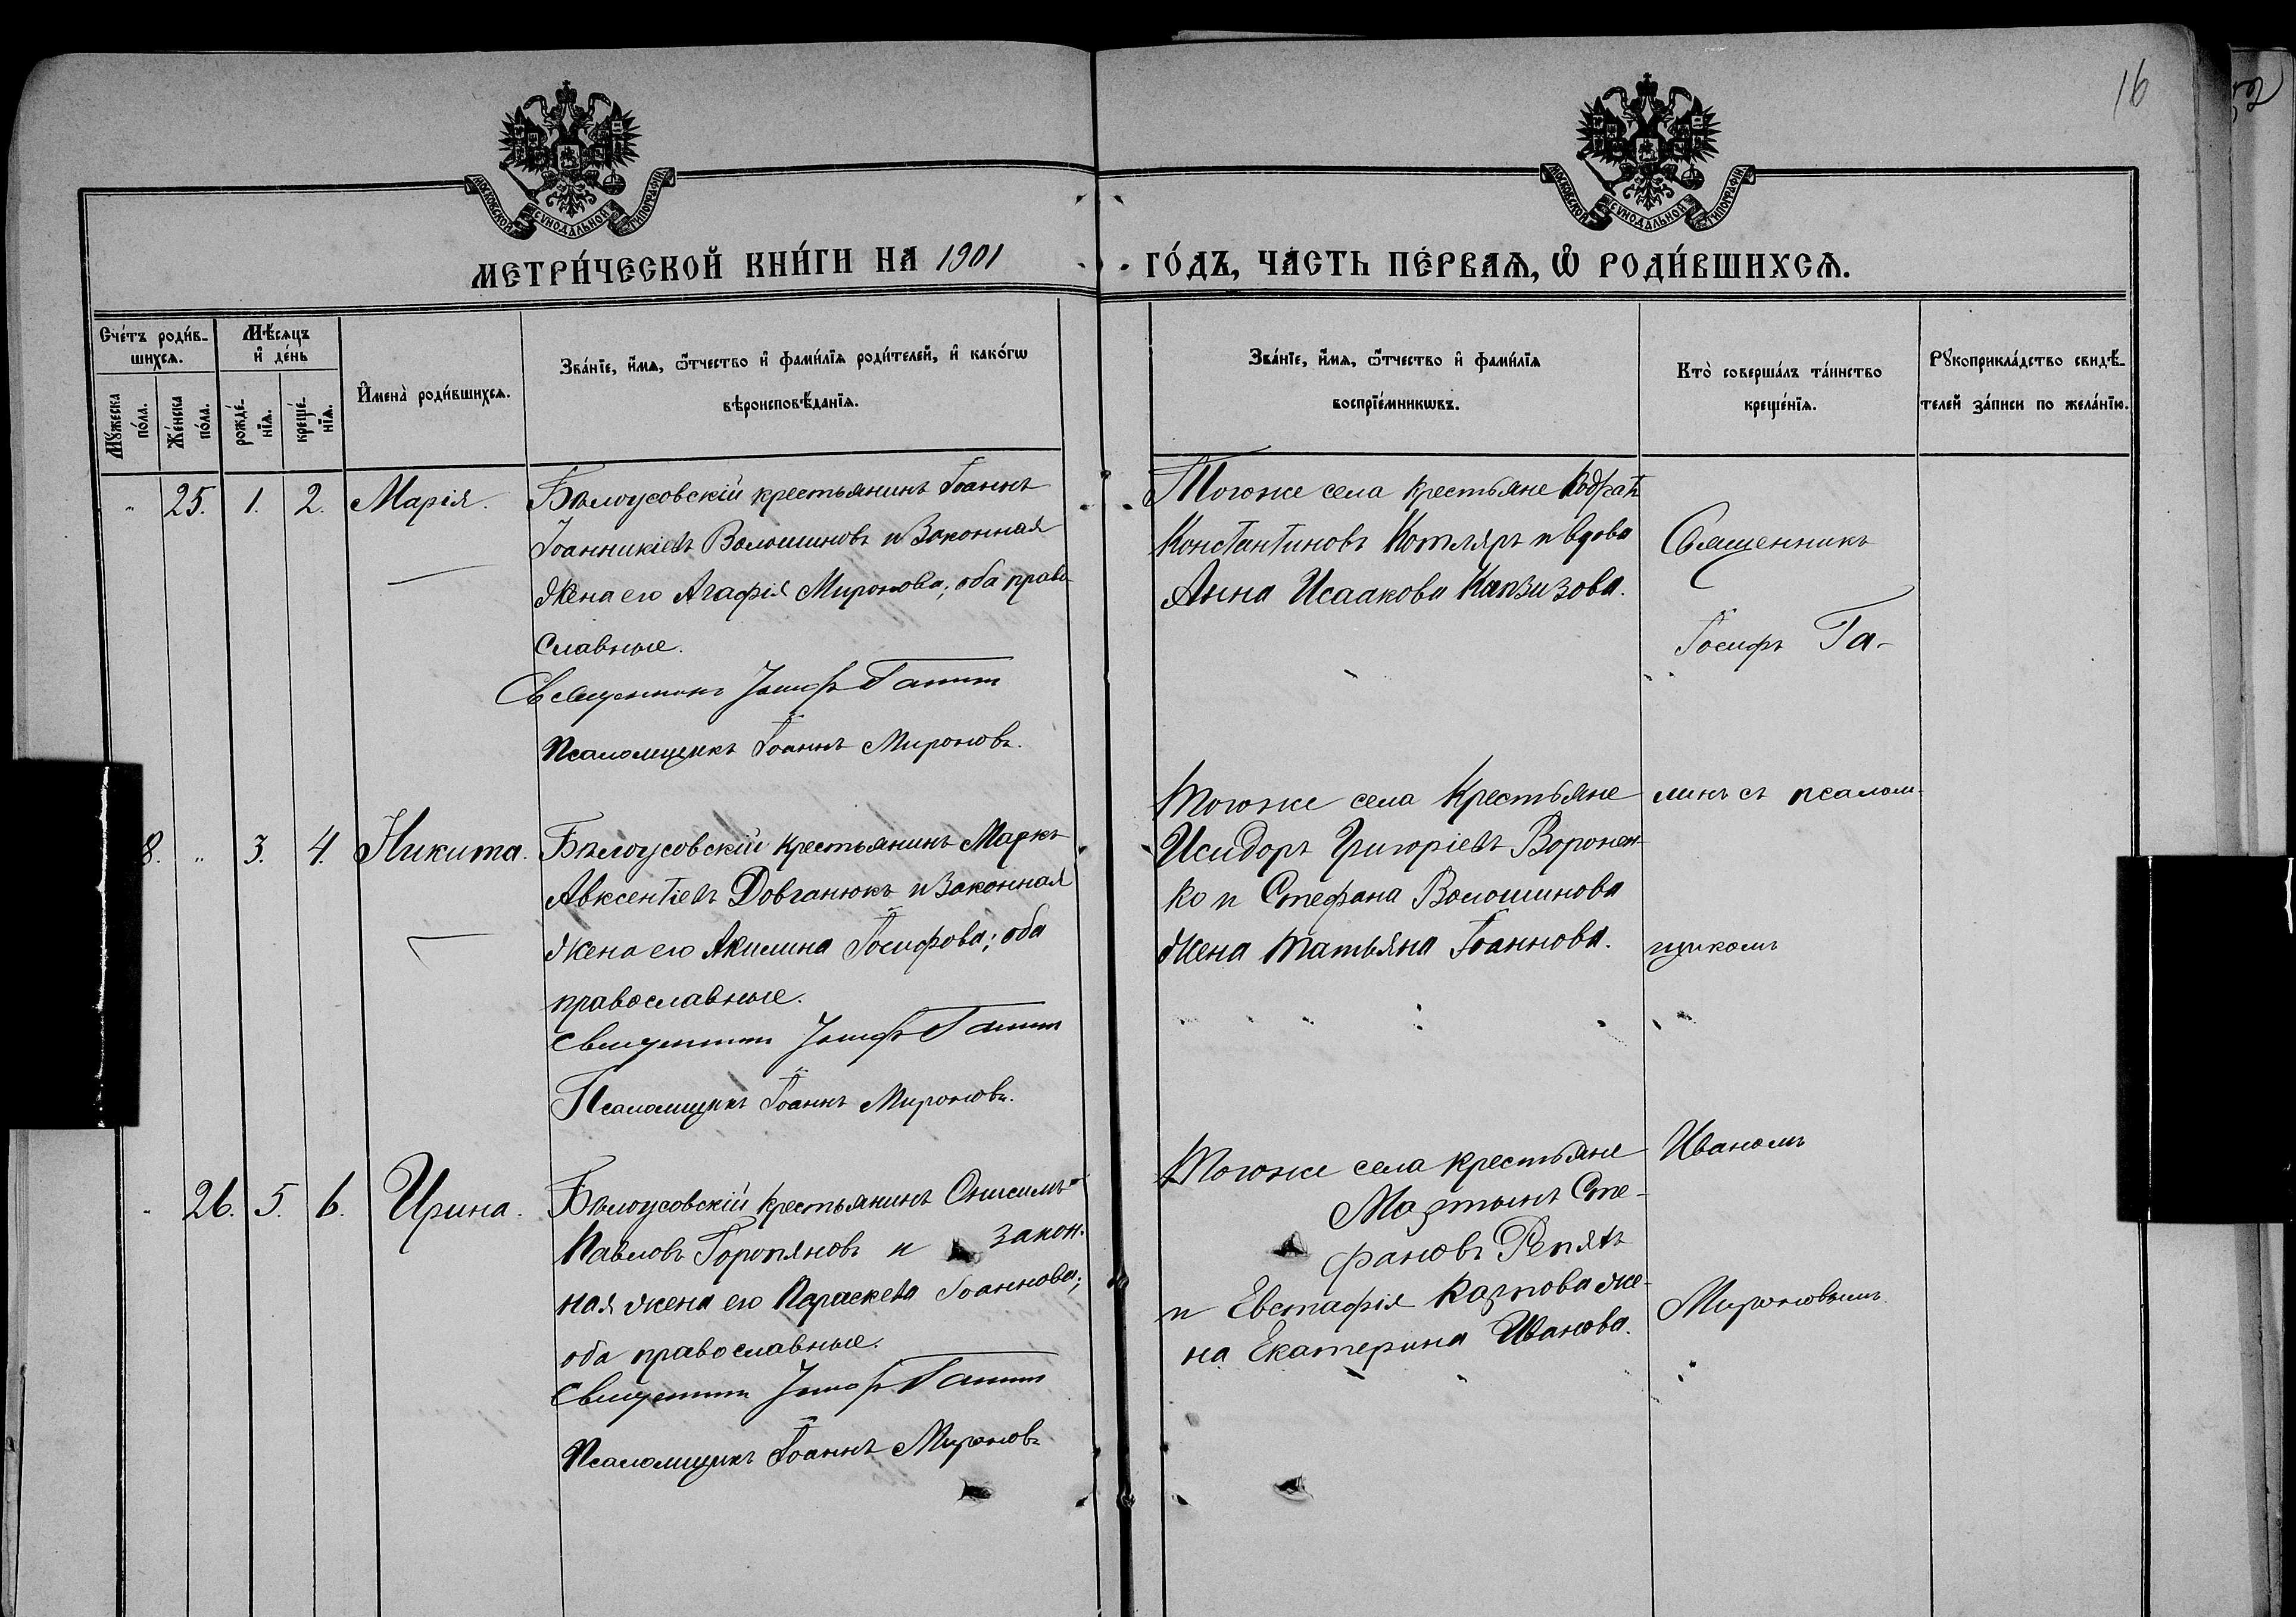 16
МОСКОВСКОЙ СѴНОДАЛЬНОЙ ТИПОГРАФІИ
МОСКОВСКОЙ СѴНОДАЛЬНОЙ ТИПОГРАФІИ
МЕТРИ́ЧЕСКОЙ КНИ́ГИ НА 1901
ГО́ДЪ, ЧА́СТЬ ПЕ́РВАѦ, Ѿ РОДИ́ВШИХСѦ.
Счетъ роди́в-
шихсѧ.
Мꙋ́жеска
по́ла.
Же́нска
по́ла.
Мѣ́сѧцъ
и де́нь
рожде́-
нїѧ.
креще́-
нїѧ.
Имена̀ роди́вшихсѧ.
Зва́нїе, и́мѧ, ѻ҆́тчество и фами́лїѧ роди́телей, и како́гѡ
вѣроисповѣ́данїѧ.
Зва́нїе, и́мѧ, ѻ҆́тчество и фами́лїѧ
воспрїе́мникѡвъ.
Кто̀ соверша́лъ та́инство
креще́нїѧ.
Рꙋкоприкла́дство свидѣ́-
телей за́писи по жела́нїю.
" 25. 1. 2. Марія.
Бѣлоусовскій крестьянинъ Іоаннъ
Іоанникіевъ Волошиновъ и законная
жена его Агафія Миронова; оба право-
славные.
Священникъ Іосифъ
Псаломщикъ Іоаннъ Мироновъ.
Тогоже села крестьяне Кодратъ
Константиновъ Котляръ и вдова
Анна Исаакова Капзизова.
Священникъ
Іосифъ Га-
8. " 3. 4. Никита.
Бѣлоусовскій крестьянинъ Маркъ
Авксентіевъ Довганюкъ и законная
жена его Акилина Іосифова; оба
православные.
Священникъ Іосифъ
Псаломщикъ Іоаннъ Мироновъ.
Тогоже села крестьяне
Исидоръ Григоріевъ Воронен-
ко и Стефана Волошинова
жена Татьяна Іоаннова.
линъ съ псалом-
щикомъ
" 26. 5. 6. Ирина.
Бѣлоусовскій крестьянинъ Онисимъ
Павловъ Горопяновъ и закон-
ная жена его Параскева Іоаннова;
оба православные.
Священникъ Іосифъ
Псаломщикъ Іоаннъ Мироновъ
Тогоже села крестьяне
Мартынъ Сте-
фановъ Репятъ
и Евстафія Карпова же-
на Екатерина Иванова.
Иваномъ
Мироновымъ.